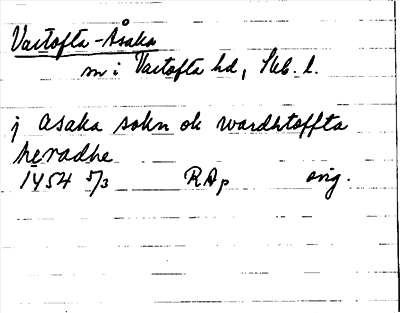 Vartofta-Åsaka
sn i Vartofta hd, Skb. l.
j asaka sokn ok wardhtoffta
heradhe
1454 5/3 RAp orig.